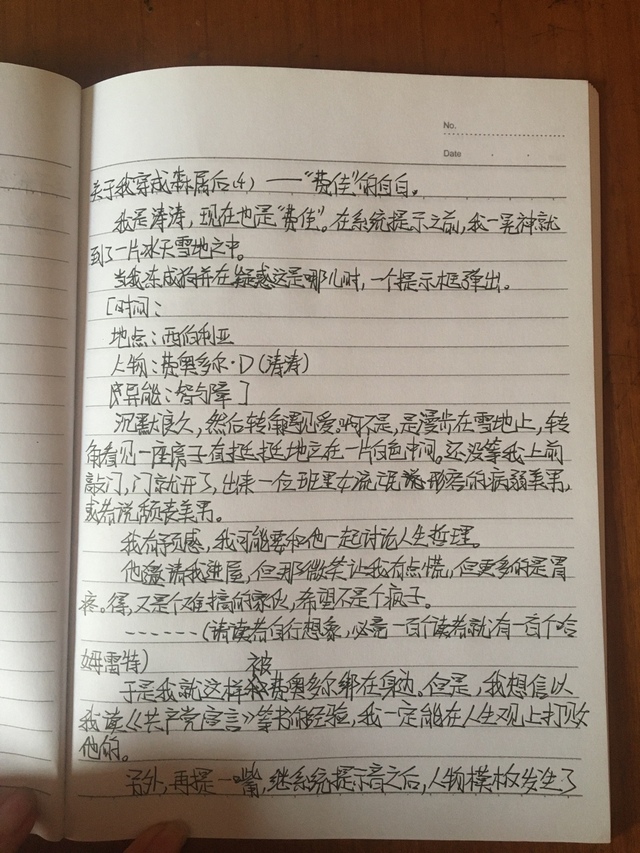 No.
Date
关于我穿成森属后(4) ——“费佳”的自白。
我是涛涛，现在也是“费佳”。在系统提示之前，我一晃神就
到了一片冰天雪地之中。
当我冻成狗并在疑惑这是哪儿时，一个提示框弹出。
[时间：
地点：西伯利亚
人物：费奥多尔·D（涛涛）
异能：智与障]
沉默良久，然后转角遇见爱。啊不是，是漫步在雪地上，转
角看见一座房子直挺挺地立在一片白色中间。还没等我上前
敲门，门就开了，出来一位班里女流氓形容的病弱美男，
或者说颓丧美男。
我有预感，我可能要和他一起讨论人生哲理。
他邀请我进屋，但那微笑让我有点慌，但更多的是胃
疼。得，又是个难搞的家伙，希望不是个疯子。
------（请读者自行想象，必竟一百个读者就有一百个哈
姆雷特）
于是我就这样被费奥多尔绑在身边。但是，我想信以
我读《共产党宣言》等书的经验，我一定能在人生观上打败
他的。
另外，再提一嘴，继系统提示音之后，人物模板发生了